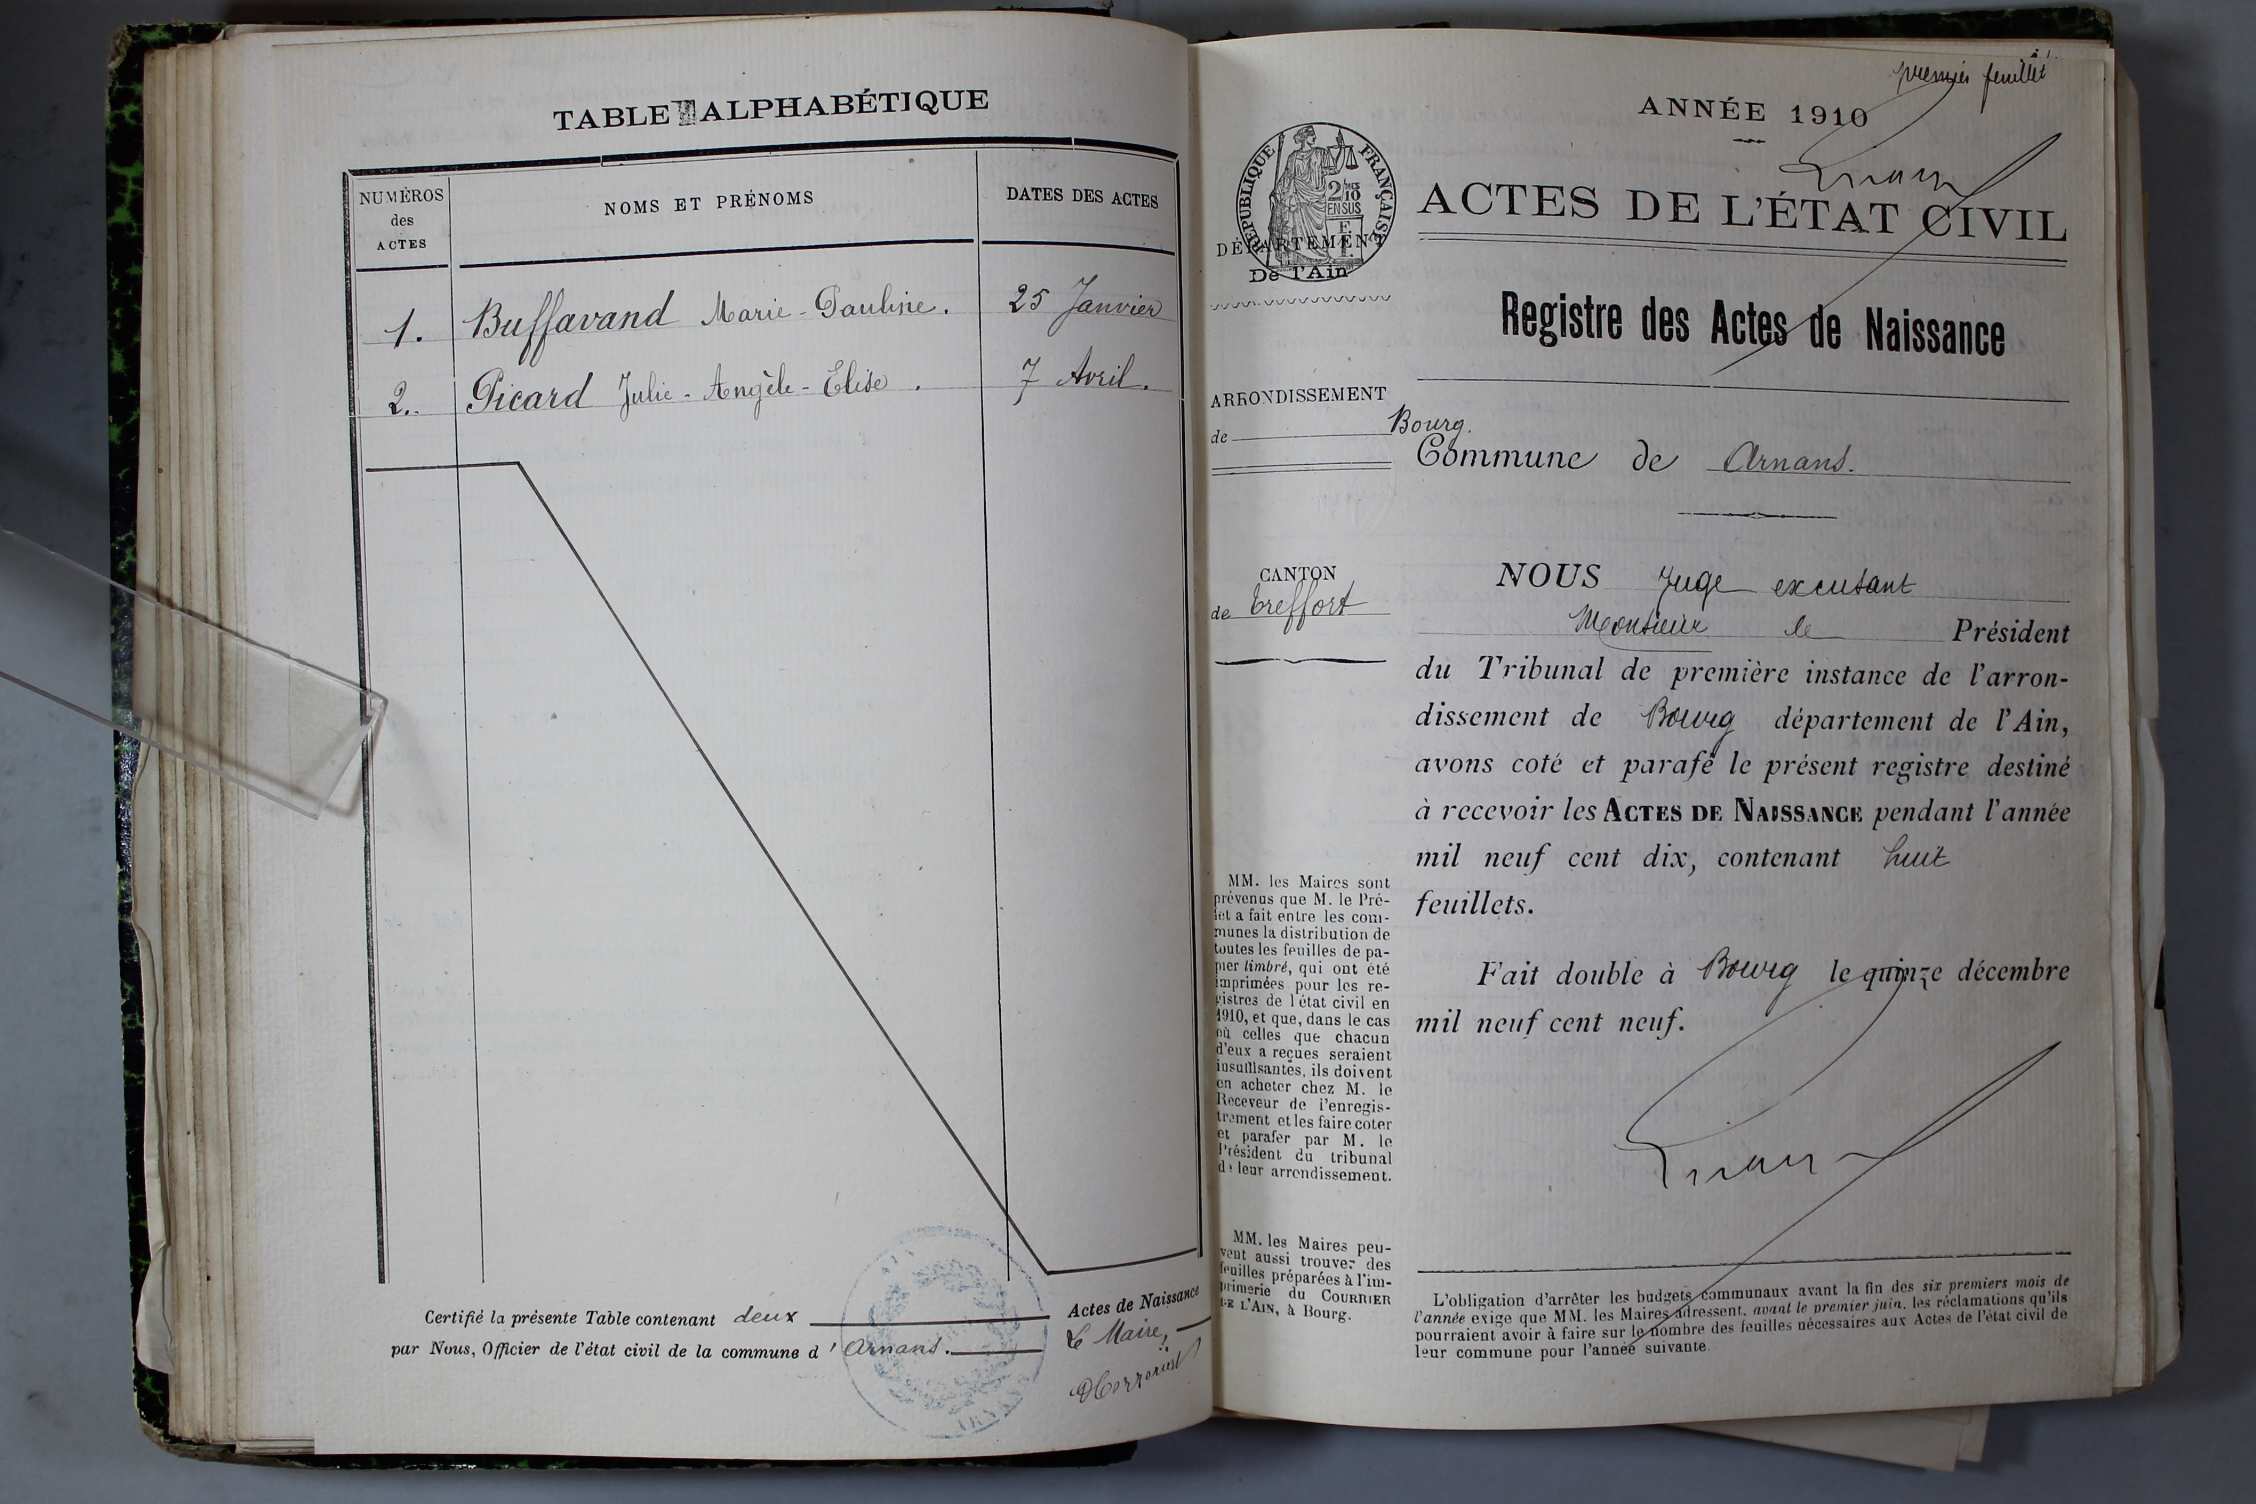 TABLE ALPHABÉTIQUE
NUMÉROS
des
ACTES
NOMS ET PRÉNOMS
DATES DES ACTES
1. Buffavand Marie-Pauline. 25 Janvier
2. Picard Julie-Angèle-Elise. 7 Avril.
Certifié la présente Table contenant deux Actes de Naissance
par Nous, Officier de l'état civil de la commune d'Arnans.
Le Maire,
premier feuillet
ANNÉE 1910
RÉPUBLIQUE FRANÇAISE
2/10
EN SUS
DÉPARTEMENT
De l'Ain
ACTES DE L'ÉTAT CIVIL
Registre des Actes de Naissance
ARRONDISSEMENT
de Bourg.
Commune de Arnans.
CANTON
de Treffort
NOUS Juge excusant
Monsieur le Président
du Tribunal de première instance de l'arron-
dissement de Bourg département de l'Ain,
avons coté et parafé le présent registre destiné
à recevoir les ACTES DE NAISSANCE pendant l'année
mil neuf cent dix, contenant huit
feuillets.
Fait double à Bourg le quinze décembre
mil neuf cent neuf.
MM. les Maires sont
prévenus que M. le Pré-
fet a fait entre les com-
munes la distribution de
toutes les feuilles de pa-
pier timbré, qui ont été
imprimées pour les re-
gistres de l'état civil en
1910, et que, dans le cas
où celles que chacun
d'eux a reçues seraient
insuffisantes, ils doivent
en acheter chez M. le
Receveur de l'enregis-
trement et les faire coter
et parafer par M. le
Président du tribunal
de leur arrondissement.
MM. les Maires peu-
vent aussi trouver des
feuilles préparées à l'im-
primerie du COURRIER
DE L'AIN, à Bourg.
L'obligation d'arrêter les budgets communaux avant la fin des six premiers mois de
l'année exige que MM. les Maires adressent, avant le premier juin, les réclamations qu'ils
pourraient avoir à faire sur le nombre des feuilles nécessaires aux Actes de l'état civil de
leur commune pour l'année suivante.